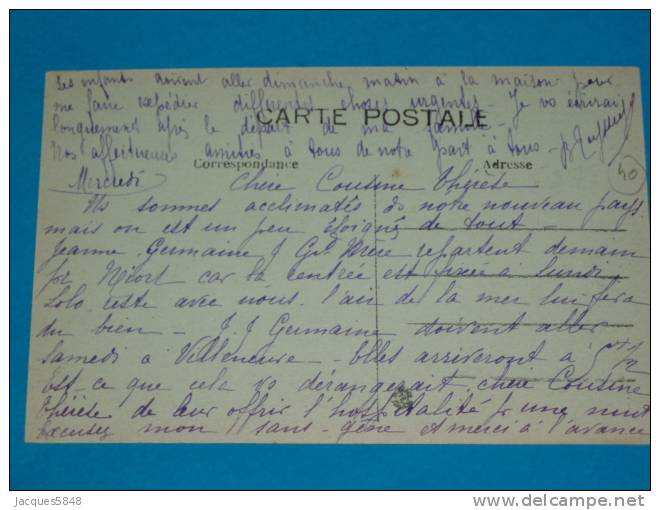 Les enfants doivent aller dimanche matin à la maison pour
me faire expédier différentes choses urgentes - Je vs écrirai
CARTE POSTALE
longuement après le départ de ma
Nos affectueuses amitiés à tous de notre part à tous -
Correspondance
Adresse
40
Mercredi
Chère Cousine Thérèse
Ns sommes acclimatés ds notre nouveau pays
mais on est un peu éloigné de tout -
Jeanne, Germaine repartent demain
pr Niort car la rentrée est fixée à lundi
Lolo reste avec nous. l'air de la mer lui fera
du bien - J. J Germaine doivent aller
samedi à Villeneuve - Elles arriveront à 5
Est ce que cela vs dérangerait, chère Cousine
Thérèse de leur offrir l'hospitalité pr une nuit
Excusez mon sans-gêne & merci à l'avance
Jacques5848
delcampe.net